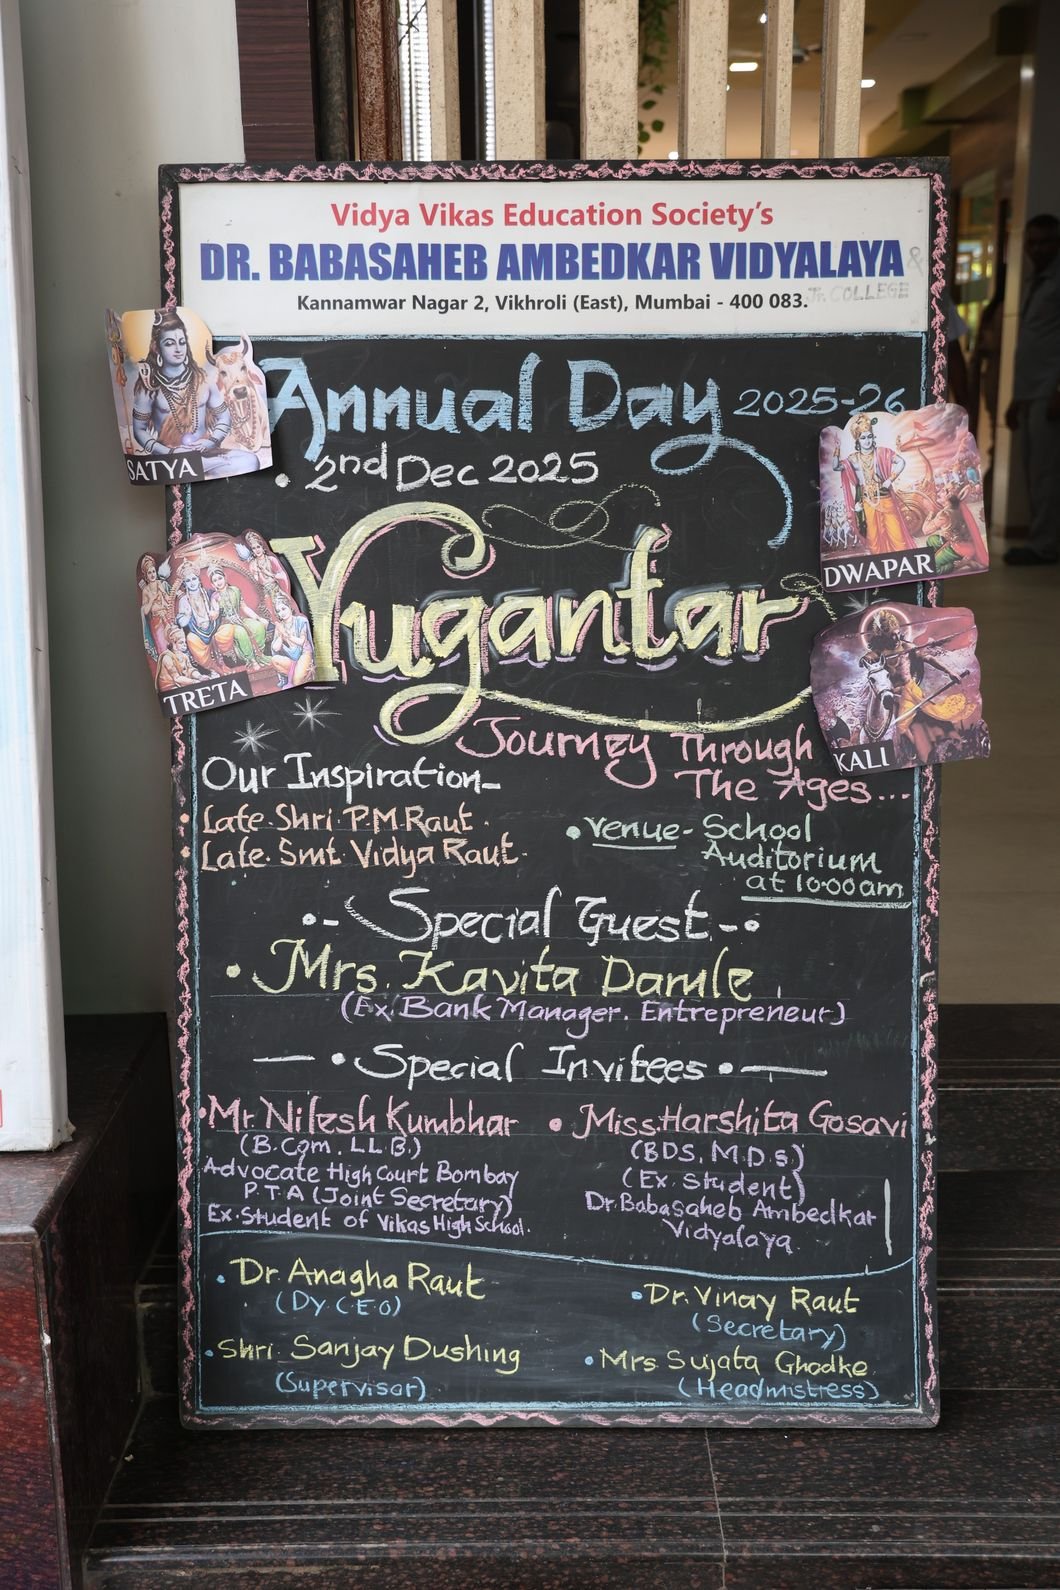 Vidya Vikas Education Society's
DR. BABASAHEB AMBEDKAR VIDYALAYA &
Jr. COLLEGE
Kannamwar Nagar 2, Vikhroli (East), Mumbai - 400 083.
Annual Day 2025-26
2nd Dec 2025
SATYA
DWAPAR
Yugantar
TRETA
KALI
Journey Through
The Ages...
Our Inspiration-
Late. Shri. P.M. Raut.
Late. Smt. Vidya Raut.
Venue- School
Auditorium
at 10.00am
Special Guest
Mrs. Kavita Damle
(Ex. Bank Manager. Entrepreneur)
Special Invitees
Mr. Nilesh Kumbhar
(B.Com. LL.B.)
Advocate High Court Bombay
P.T.A (Joint Secretary)
Ex. Student of Vikas High School.
Miss. Harshita Gosavi
(BDS, M.D.S)
(Ex. Student)
Dr. Babasaheb Ambedkar
Vidyalaya.
Dr. Anagha Raut
(Dy. C.E.O)
Dr. Vinay Raut
(Secretary)
Shri. Sanjay Dushing
(Supervisor)
Mrs Sujata Ghodke
(Headmistress)